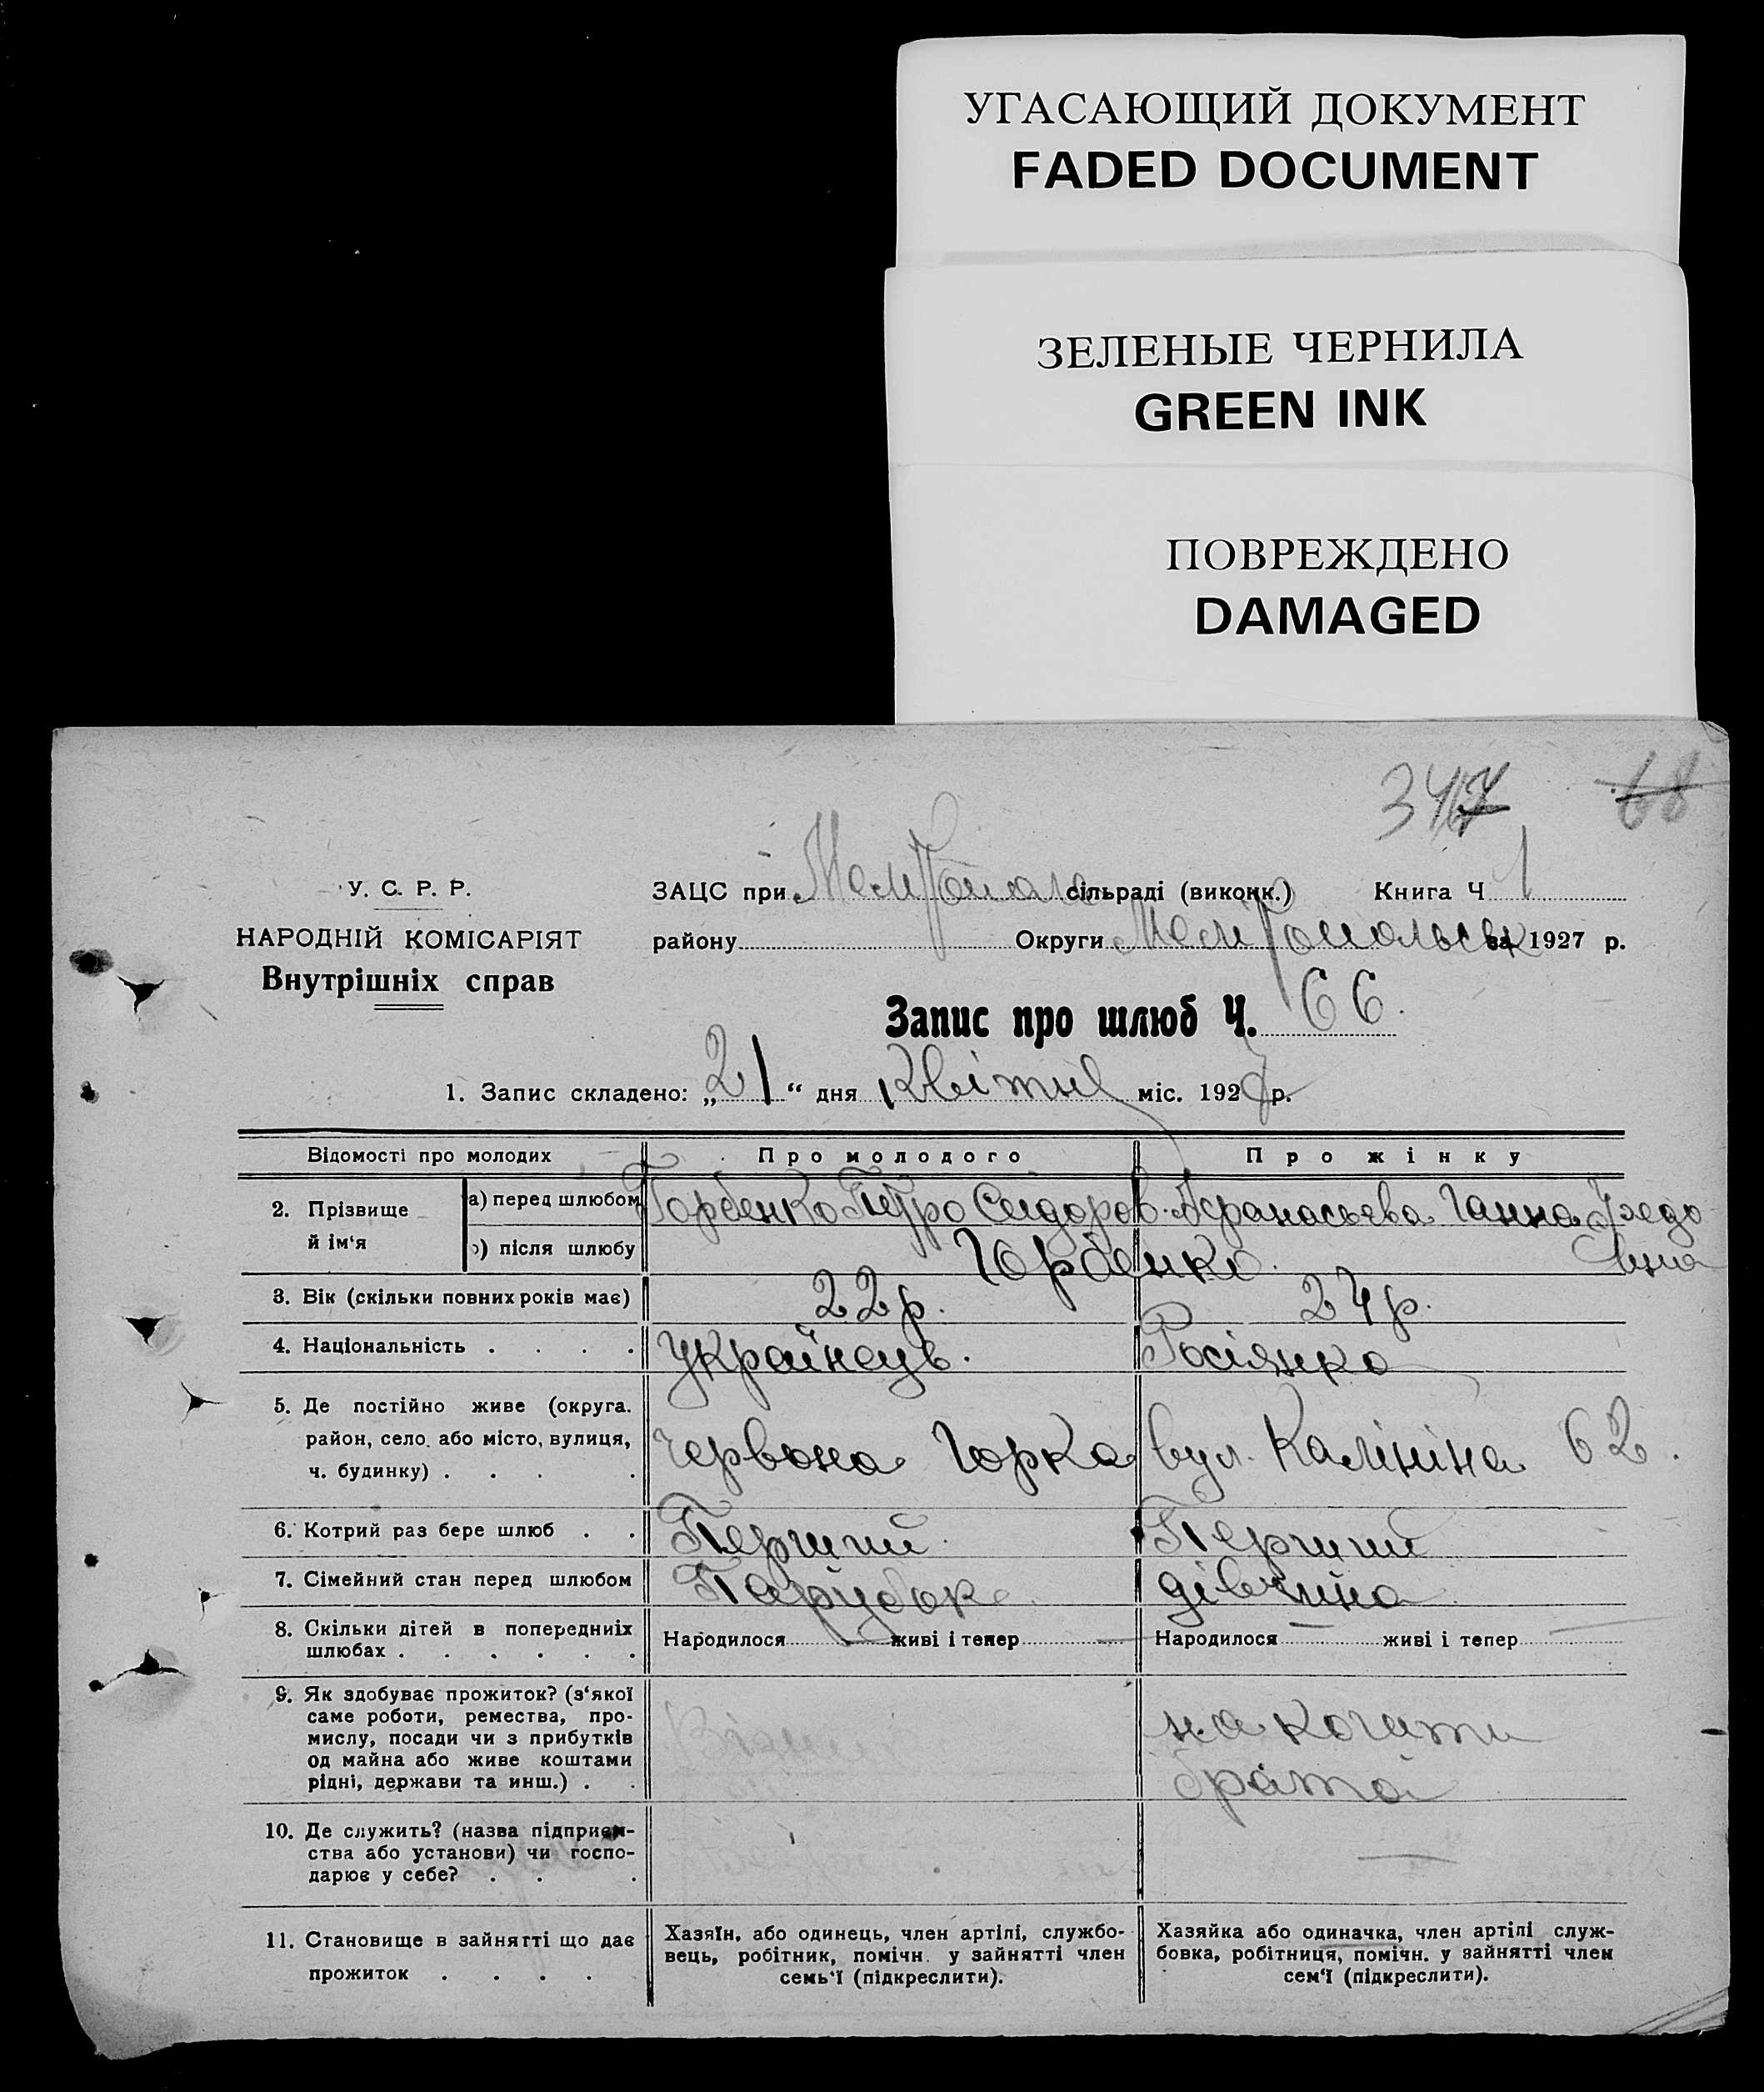 УГАСАЮЩИЙ ДОКУМЕНТ
FADED DOCUMENT
ЗЕЛЕНЫЕ ЧЕРНИЛА
GREEN INK
ПОВРЕЖДЕНО
DAMAGED
347 68
У. С. Р. Р.
НАРОДНІЙ КОМІСАРІЯТ
Внутрішніх справ
ЗАЦС при сільраді (виконк.) Книга Ч 1
району Округи Мелітопольськ за 1927 р.
Запис про шлюб Ч. 66.
1. Запис складено: „21“ дня Квітня міс. 1927 р.
Відомості про молодих Про молодого Про жінку
2. Прізвище й ім‘я
а) перед шлюбом Горбенко Петро Сидоров. Афанасьева Ганна Федо
вна
б) після шлюбу Горбенко.
3. Вік (скільки повних років має) 22 р. 24 р.
4. Національність . . . . Українець. Росіянка
5. Де постійно живе (округа.
район, село або місто, вулиця,
ч. будинку) . . . .
Червона Горка вул. Калініна 62.
6. Котрий раз бере шлюб . . Перший Перший
7. Сімейний стан перед шлюбом Парубок дівчина
8. Скільки дітей в попередниіх
шлюбах . . . . . .
Народилося — живі і тепер — Народилося — живі і тепер —
9. Як здобуває прожиток? (з‘якої
саме роботи, ремества, про-
мислу, посади чи з прибутків
од майна або живе коштами
рідні, держави та инш.) . .
на кошти
брата
10. Де служить? (назва підприєм-
ства або установи) чи госпо-
дарює у себе? . . .
—
11. Становище в зайнятті що дає
прожиток . . . .
Хазяїн, або одинець, член артілі, службо-
вець, робітник, помічн. у зайнятті член
семь‘ї (підкреслити).
Хазяйка або одиначка, член артілі служ-
бовка, робітниця, помічн. у зайнятті член
сем‘ї (підкреслити).